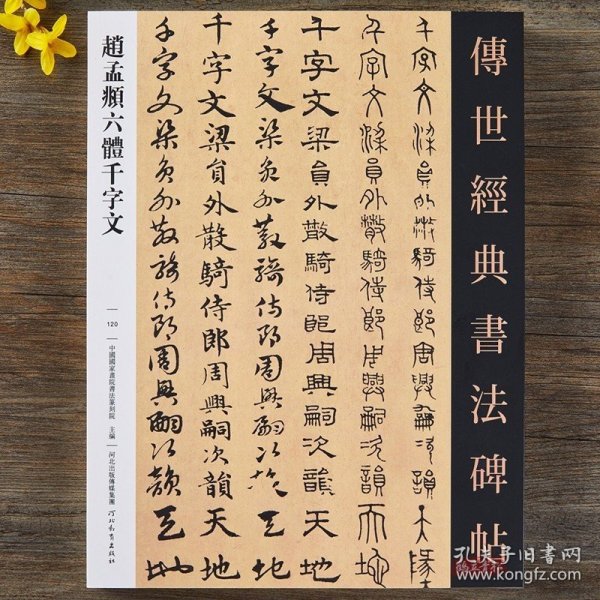 傳世經典書法碑帖
千字文梁員外散騎侍郎周興嗣次韻天地
千字文梁員外散騎侍郎周興嗣次韻天地
千字文梁員外散騎侍郎周興嗣次韻天地
千字文梁員外散騎侍郎周興嗣次韻天地
千字文梁員外散騎侍郎周興嗣次韻天地
千字文梁員外散騎侍郎周興嗣次韻天地
趙孟頫六體千字文
120
中國國家畫院書法篆刻院 主編
河北出版傳媒集團
河北教育出版社
孔夫子旧书网
www.kongfz.com